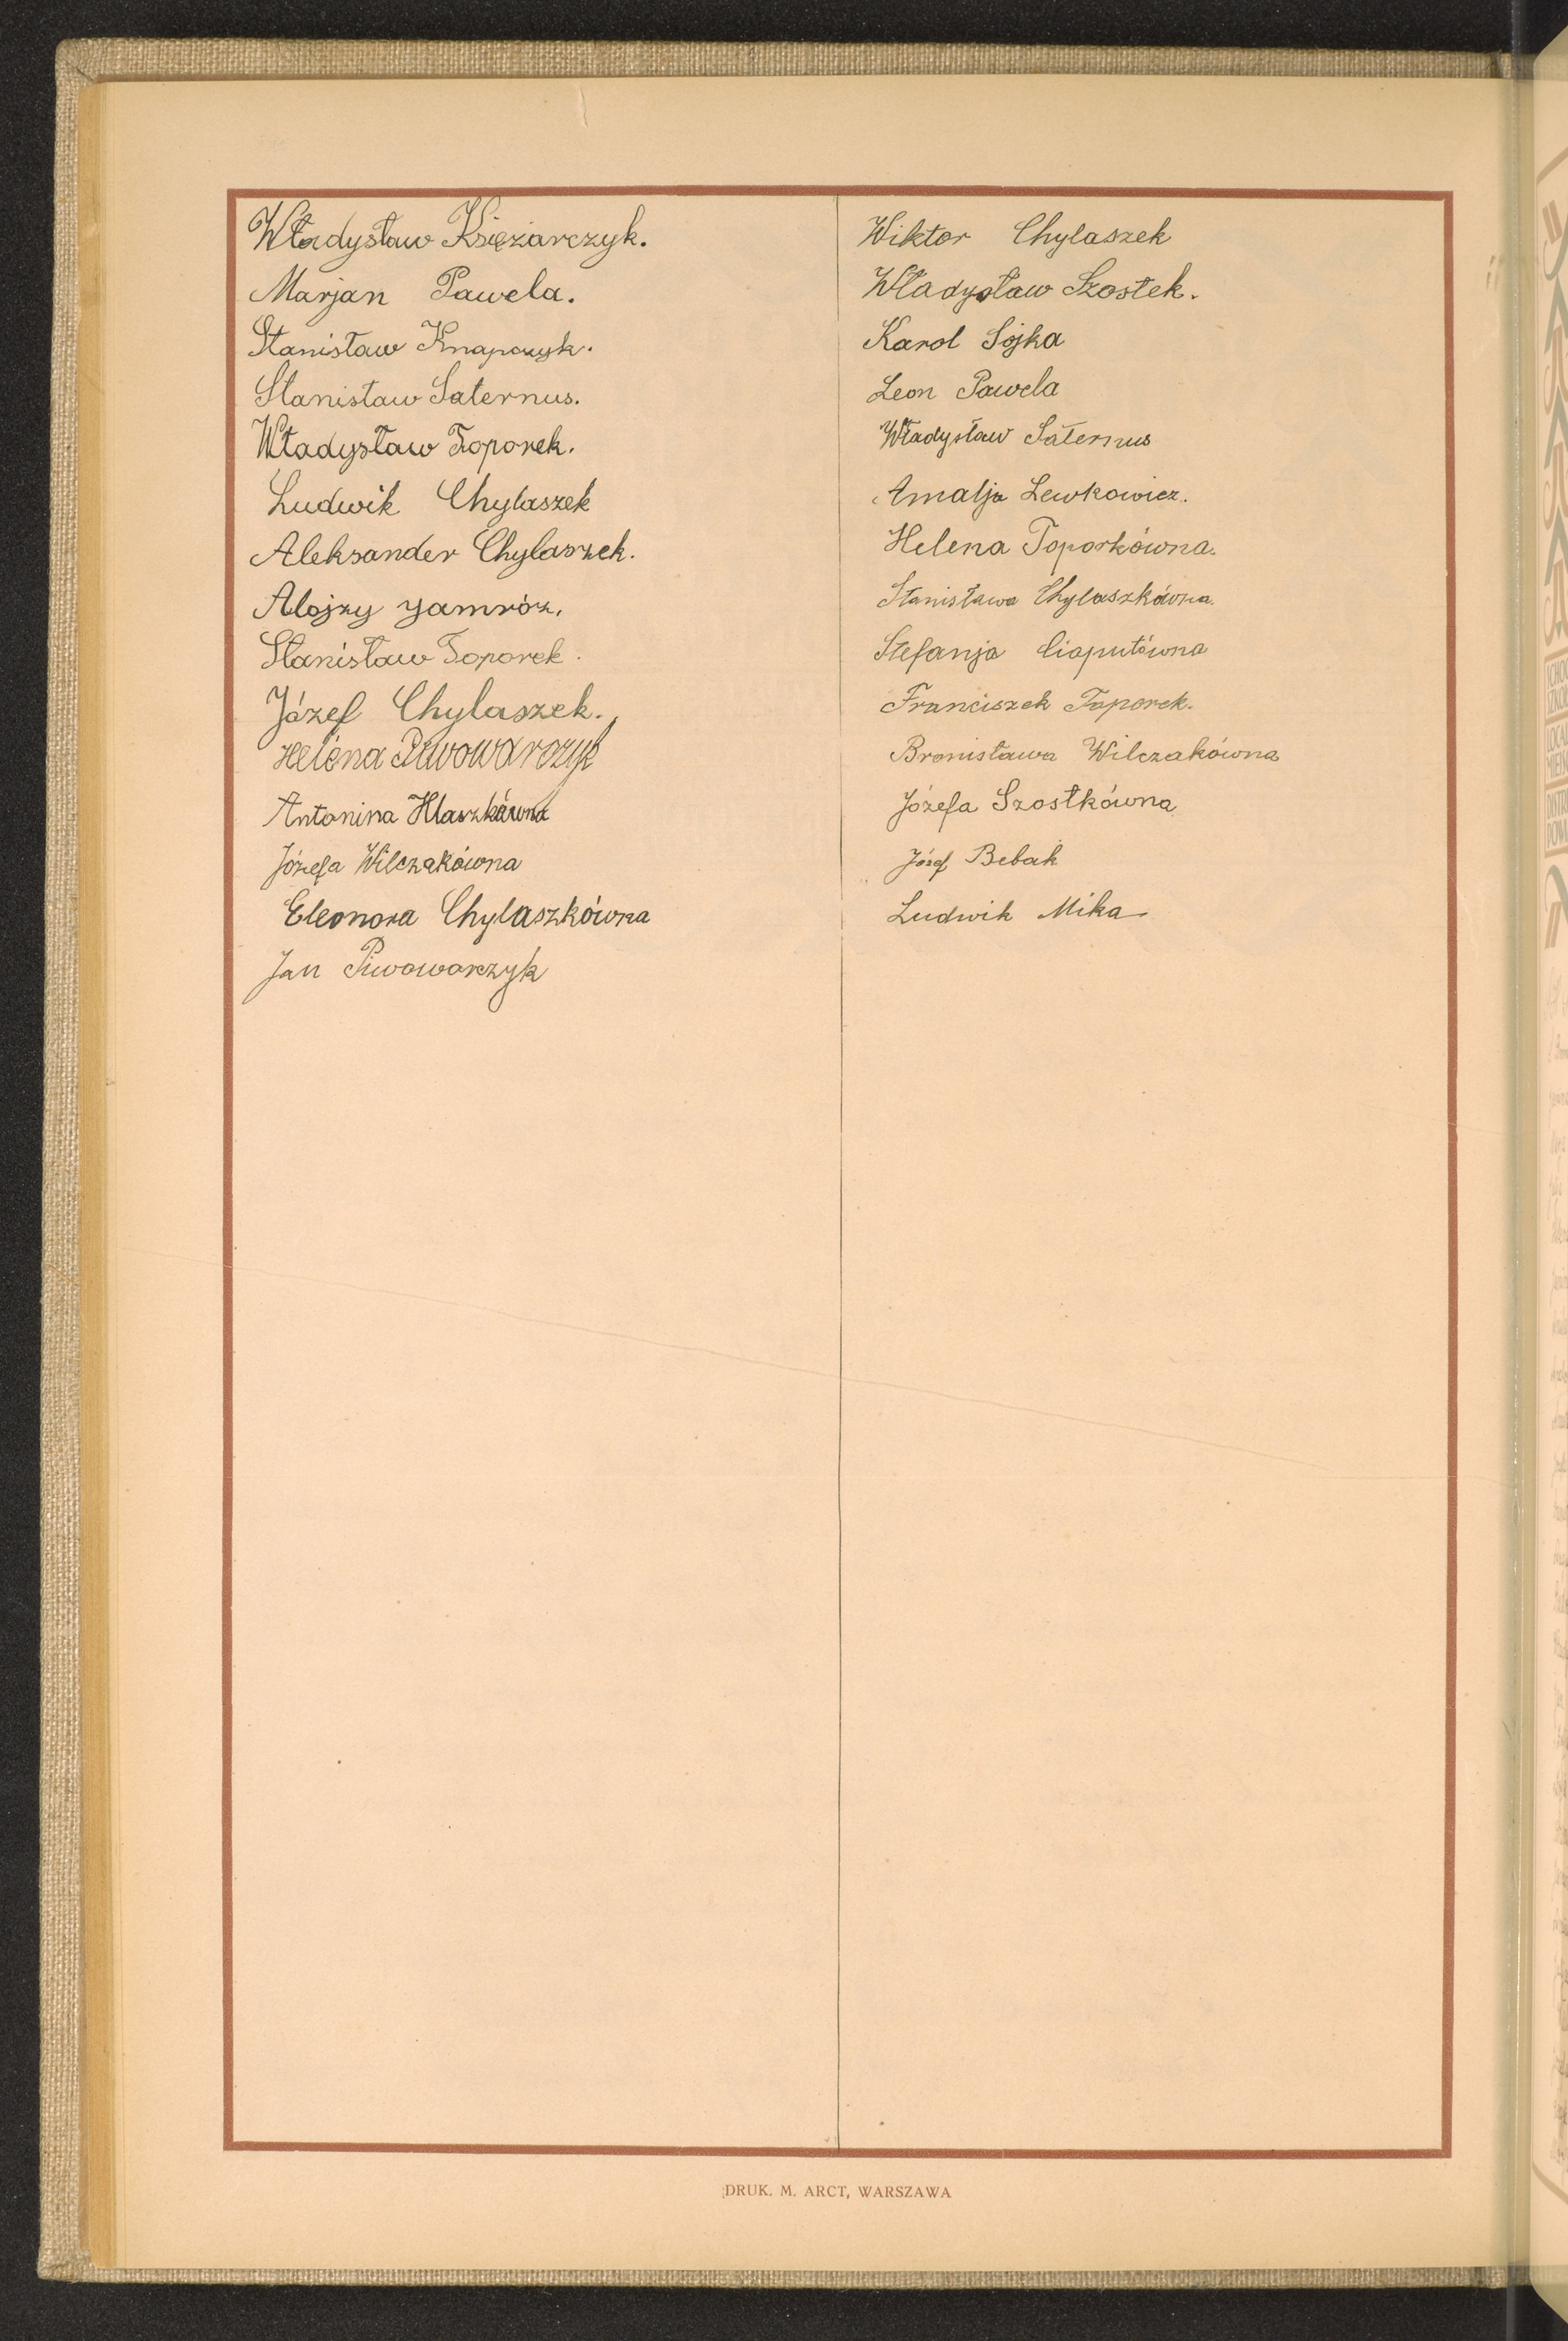 Władysław Księżarczyk.
Marjan Pawela.
Stanisław Knapczyk.
Stanisław Saternus.
Władysław Toporek.
Ludwik Chylaszek
Aleksander Chylaszek.
Alojzy Jamróz.
Stanisław Toporek.
Józef Chylaszek.
Helena Piwowarczyk
Antonina Hlaszkówna
Józefa Wilczakówna
Eleonora Chylaszkówna
Jan Piwowarczyk
Wiktor Chylaszek
Władysław Szostek.
Karol Sojka
Leon Pawela
Władysław Saternus
Amalja Lewkowicz.
Helena Toporkówna.
Stanisława Chylaszkówna.
Stefanja Ciaputówna
Franciszek Toporek.
Bronisława Wilczakówna
Józefa Szostkówna
Józef Bebak
Ludwik Mika
DRUK. M. ARCT, WARSZAWA